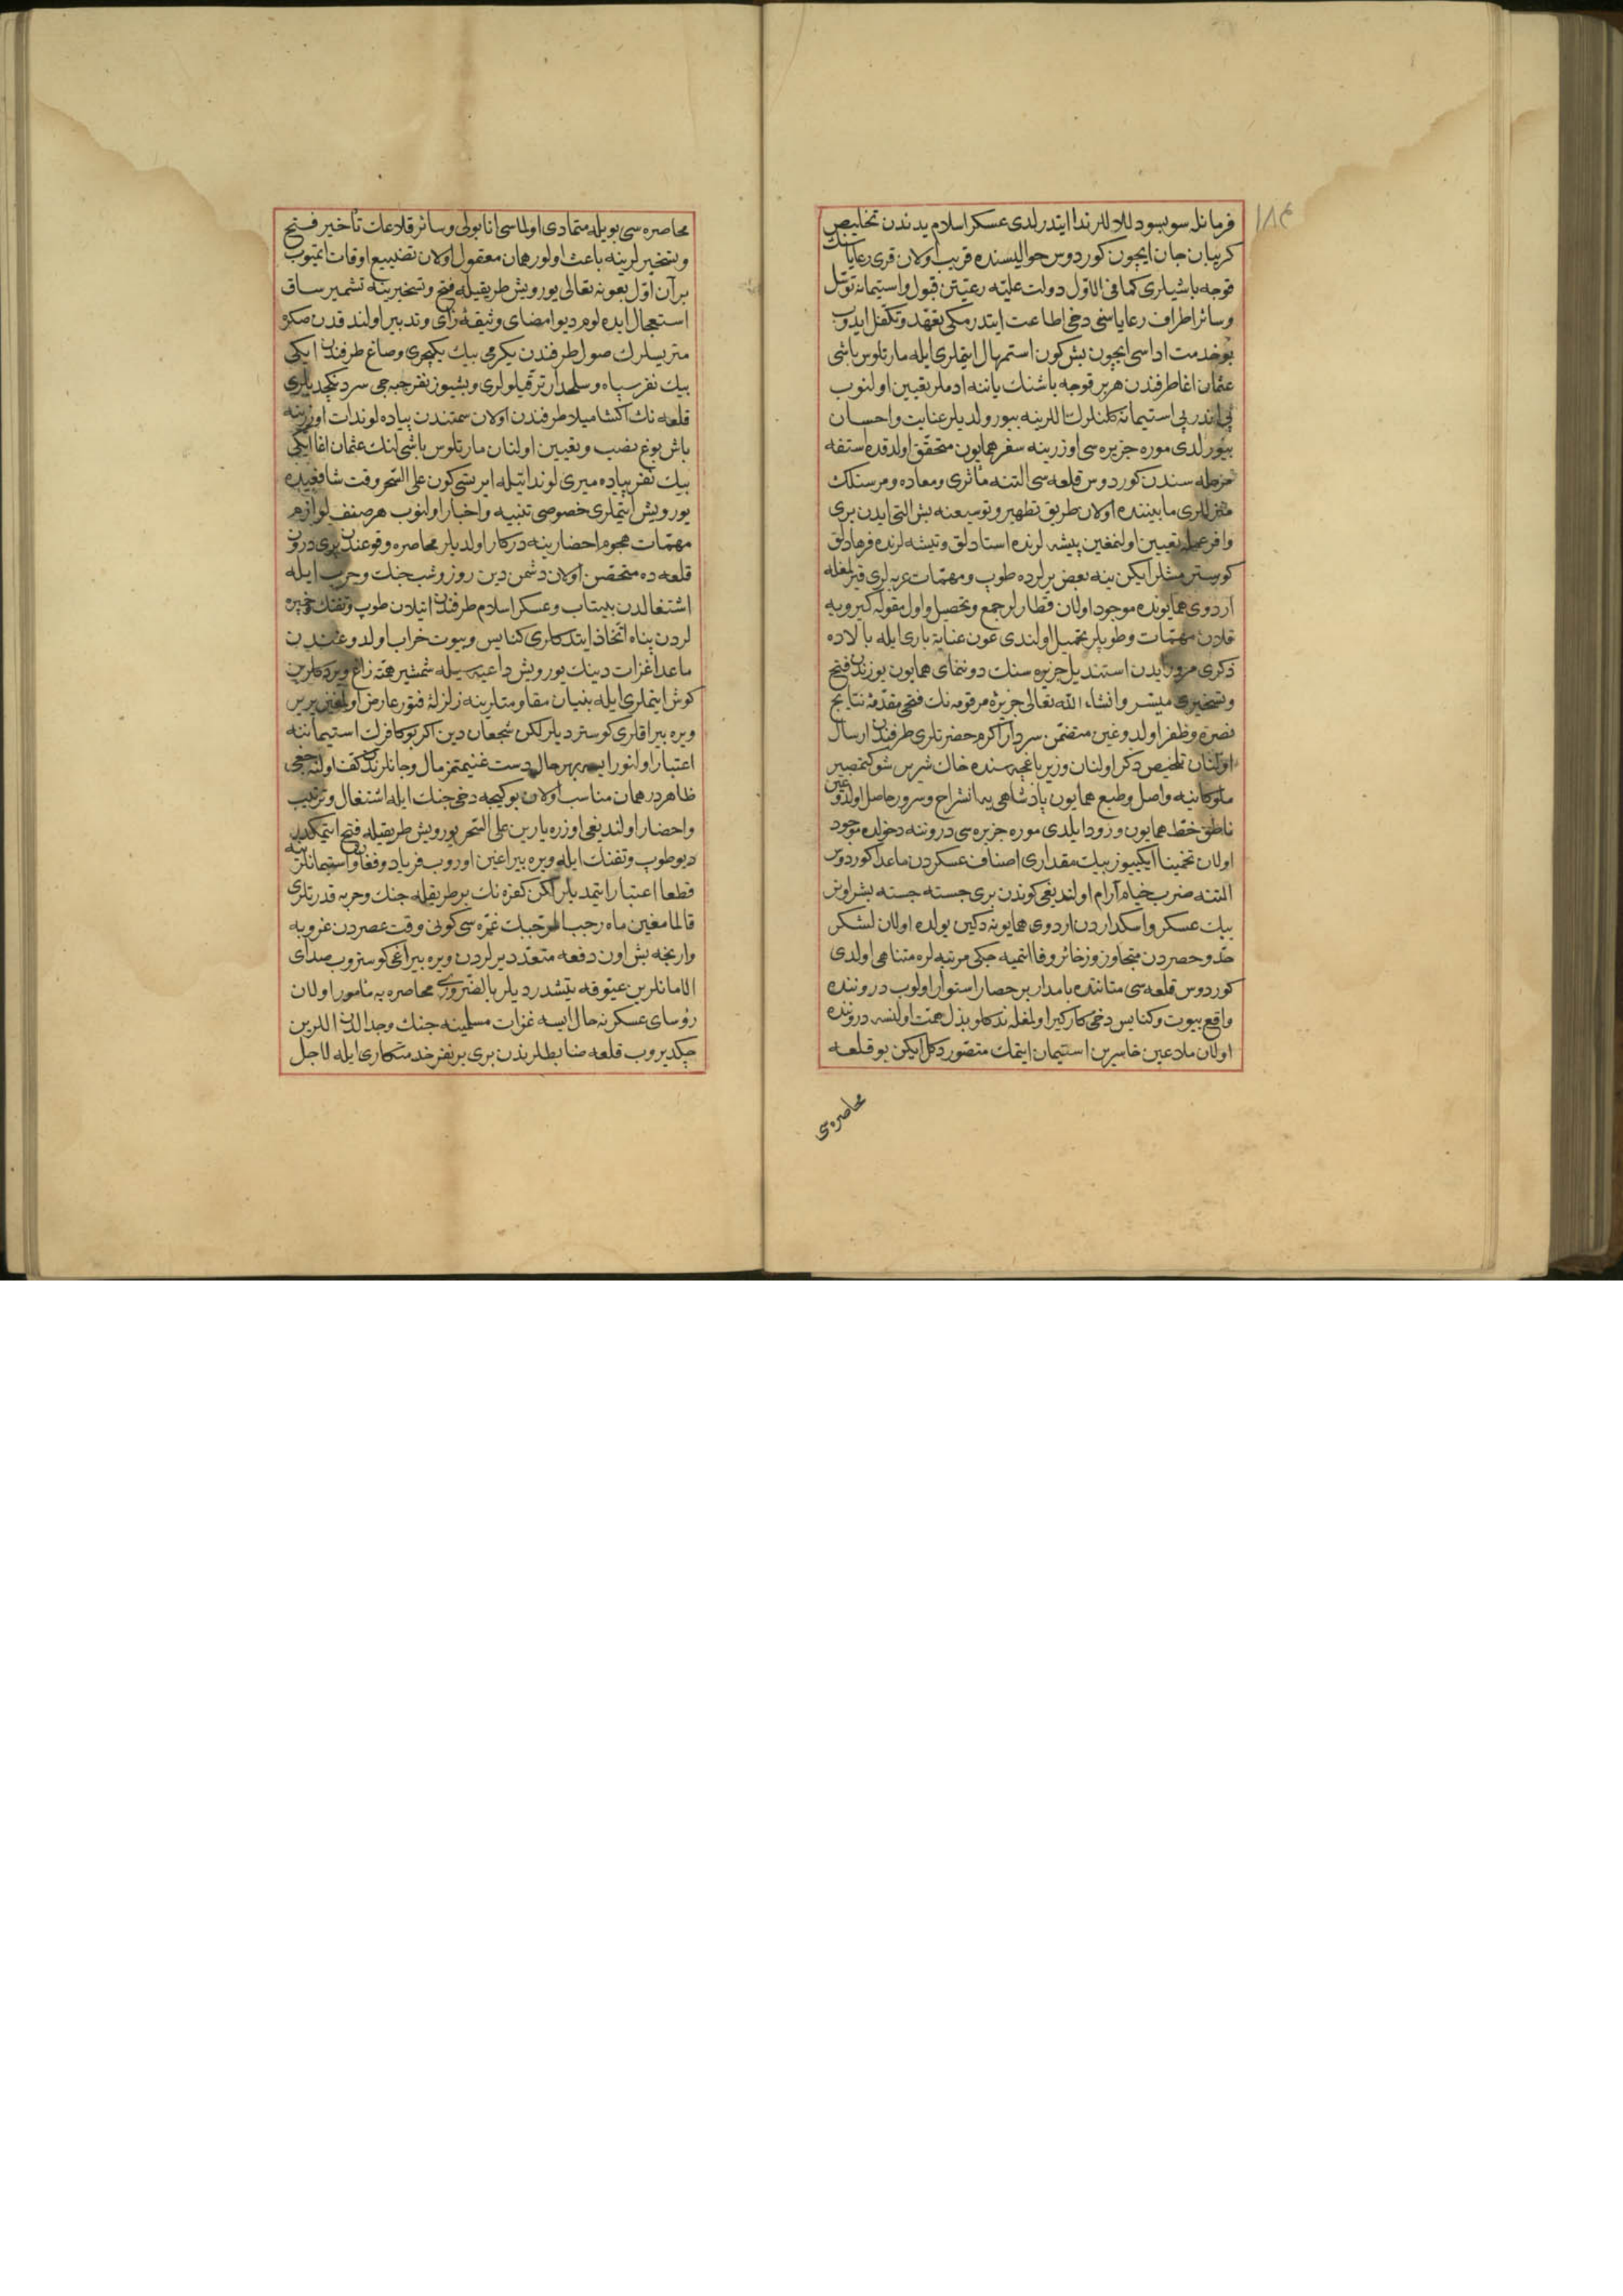 ١٨٤
فرمانله سوبسو دلاللر ندا ايتدرلدى عسكر اسلام يدندن تخليص
كريبان جان ايچون كوردوس حواليسنده قريب اولان قرى رعاياسنك
قوجه باشيلرى كما فى الاوّل دولت عليّه رعيّتن قبول واستيمانه توسّل
وسائر اطراف رعاياسنى دخى اطاعت ايتدرمكى تعهّد وتكفّل ايدوب
بو خدمت اداسى ايچون بش كون استمهال ايتملرى ايله مارتلوس باشى
عثمان اغا طرفندن هر بر قوجه باشنك ياننه ادملر تعيين اولنوب
پى اندر پى استيمانه كلنلرك اللرينه بيورولديلر عنايت واحسان
بيورلدى موره جزيره سى اوزرينه سفر همايون متحقّق اولدقده استفه
سندن كوردوس قلعه سى التنه مأثرى ومعاده ومرسنلك
منزللرى مابيننده اولان طريق تطهير وتوسيعنه بش التى ايدن برى
وافر عمله تعيين اولنمغين پيشه لرنده استادلق وتيشه لرنده فرهادلق
كوسترمشلر ايكن ينه بعض يرلرده طوپ ومهمّات عربه لرى قيرلمغله
اردوى همايونده موجود اولان قطارلر جمع وتحصيل واول مقوله كيرويه
قلان مهمّات وطوپلر تحميل اولندى عون عناية بارى ايله بالاده
ذكرى مرور ايدن استنديل جزيره سنك دوننماى همايون يوزندن فتح
وتسخيرى ميسّر وانشاء الله تعالى جزيرهٔ مرقومه نك فتحى مقدّمهٔ نتايج
نصرة وظفر اولدوغين متضمّن سردار اكرم حضرتلرى طرفندن ارسال
اولنان تلخيص دكر اولنان وزير باغچه سنده خاك شريس شوكتمصير
ملوكانه يه واصل وطبع همايون پادشاهى يه انشراح وسرور حاصل اولدوغين
ناطق خطّ همايون ورود ايلدى موره جزيره سى دروننه دخولده موجود
اولان تخمينا ايكيوز بيك مقدارى اصناف عسكردن ماعدا كوردوس
التنه ضرب خيام آرام اولنديغى كوندن برى جسته جسته بشر اونر
بيك عسكر واسكداردن اردوى همايونه دكين يولده اولان لشكر
حدّ وحصردن متجاوز وذخائر وفا ايتميه جكى مرتبه لره متناهى اولدى
كوردوس قلعه سى متانتده پامدار بر حصار استوار اولوب دروننده
واقع بيوت وكنايس دخى كاركير اولمغله نه كلو بذل همّت اولنسه دروننده
اولان ملاعين خاسرين استيمان ايتمك متصوّر دكل ايكن بو قلعه
محاصره سى
محاصره سى بويله متمادى اولماسى انابولى وسائر قلاعك تأخير فتح
وتسخيرلرينه باعث اولور همان معقول اولان تضييع اوقات ايتميوب
بر آن اوّل بعونه تعالى يورويش طريقيله فتح وتسخيرينه تشمير ساق
استعجال ايده لوم ديو امضاى وثيقهٔ رأى وتدبير اولندقدن صكره
متريسلرك صول طرفندن يكرمى بيك يكيچرى وصاغ طرفندن ايكى
بيك نفر سپاه وسلحدار ترقّيلولرى وبشيوز نفر جبه جى سردنكچديلرى
قلعه نك اكشاميلا طرفندن اولان سمتندن پياده لوندات اوزرينه
باش بوغ نصب وتعيين اولنان مارتلوس باشى لنك عثمان اغا ايكى
بيك نفر پياده ميرى لونداتيله ايرتسى كون على السّحر وقت شافعيده
يورويش ايتملرى خصوصى تنبيه واخبار اولنوب هر صنف لوازم
مهمّات هجوم احضارينه دركار اولديلر محاصره وقوعندن برى درون
قلعه ده متحصّن اولان دشمن دين روز وشب جنك وحرب ايله
اشتغالدن بيتاب وعسكر اسلام طرفندن اتيلان طوپ وتفنك وخمپره
لردن پناه اتّخاذ ايتدكلرى كنايس وبيوت خراب اولدوغندن
ماعدا غزات دينك يورويش داعيه سيله شمشير همّته زاغ ويردكلرين
كوش ايتملرى ايله بنيان مقاومتلرينه زلزلهٔ فتور عارض اولمغين ير ير
ويره بيراقلرى كوسترديلر لكن شجعان دين اكر بو كافرلك استيماننه
اعتبار اولنور ايسه بهر حال دست غنيمتمز مال وجانلرندن كفّ اولنه جغى
ظاهردر همان مناسب اولان بو كيجه دخى جنك ايله اشتغال وترتيب
واحضار اولنديغى اوزره يارين على السّحر يورويش طريقيله فتح ايتمكدر
ديو طوپ وتفنك ايله ويره بيراغين اوروب فرياد وفغان واستيمانلرينه
قطعا اعتبار ايتمديلر لكن كفره نك بر طريقله جنك وحربه قدرتلرى
قالمامغين ماه رجب المرجّبك غرّه سى كونى وقت عصردن غروبه
وارنجه بش اون دفعه متعدّد يرلردن ويره بيراغى كوستروب صداى
الامانلرين عيوقه يتشدرديلر بالضّرورى محاصره يه مأمور اولان
رؤساى عسكر نه حال ايسه غزات مسلمينه جنك وجدالدن اللرين
چكديروب قلعه ضابطلرندن برى بر نفر خدمتكارى ايله لاجل